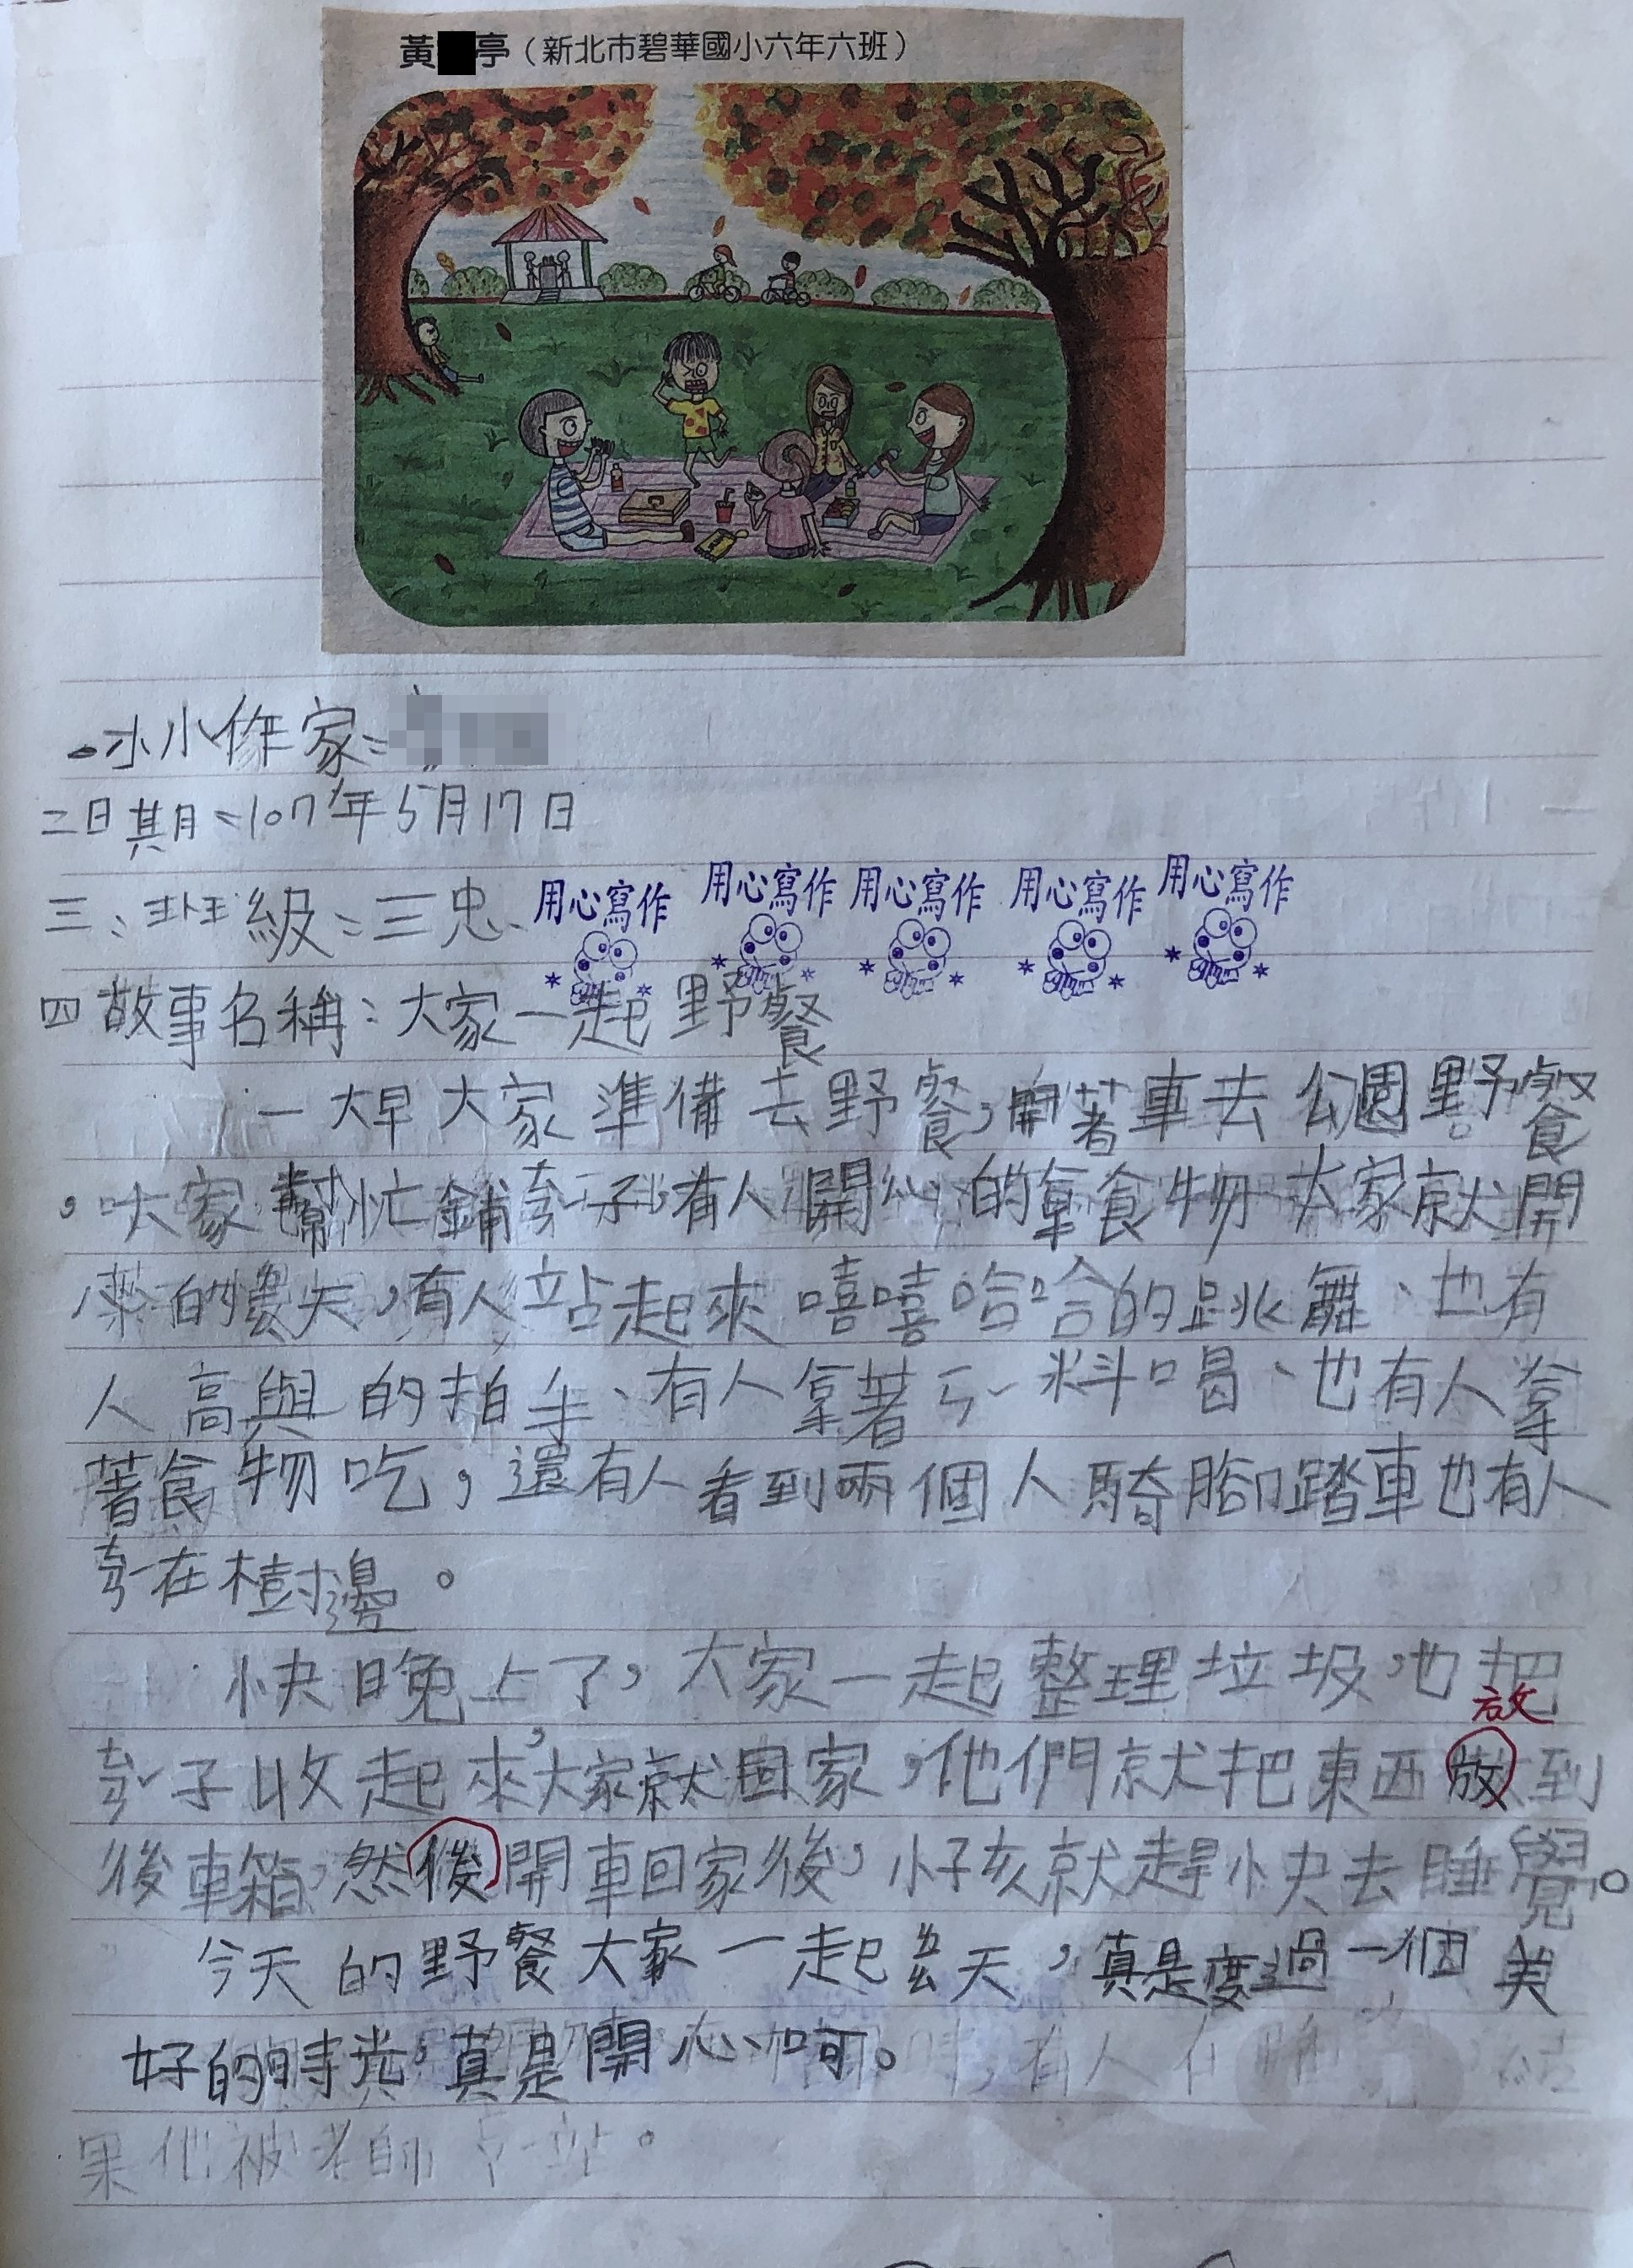 黃 亭（新北市碧華國小六年六班）
一小小作家：
二日期：107年5月17日
三、班級：三忠、
用心寫作 用心寫作 用心寫作 用心寫作 用心寫作
四故事名稱：大家一起野餐
一大早大家準備去野餐，開著車去公園野餐
，大家幫忙鋪ㄊㄢˇ子，有人開心的拿食物大家就開
的聊天，有人站起來嘻嘻哈哈的跳舞、也有
人高興的拍手、有人拿著ㄧㄣˇ料喝、也有人拿
著食物吃，還有人看到兩個人騎腳踏車也有人
在樹邊。
快晚上了，大家一起整理垃圾，也把
放
ㄊㄢˇ子收起來，大家就回家，他們就把東西放到
後車箱，然後開車回家後，小孩就趕快去睡覺。
今天的野餐大家一起聊天，真是度過一個美
好的時光，真是開心啊。
果他被老師